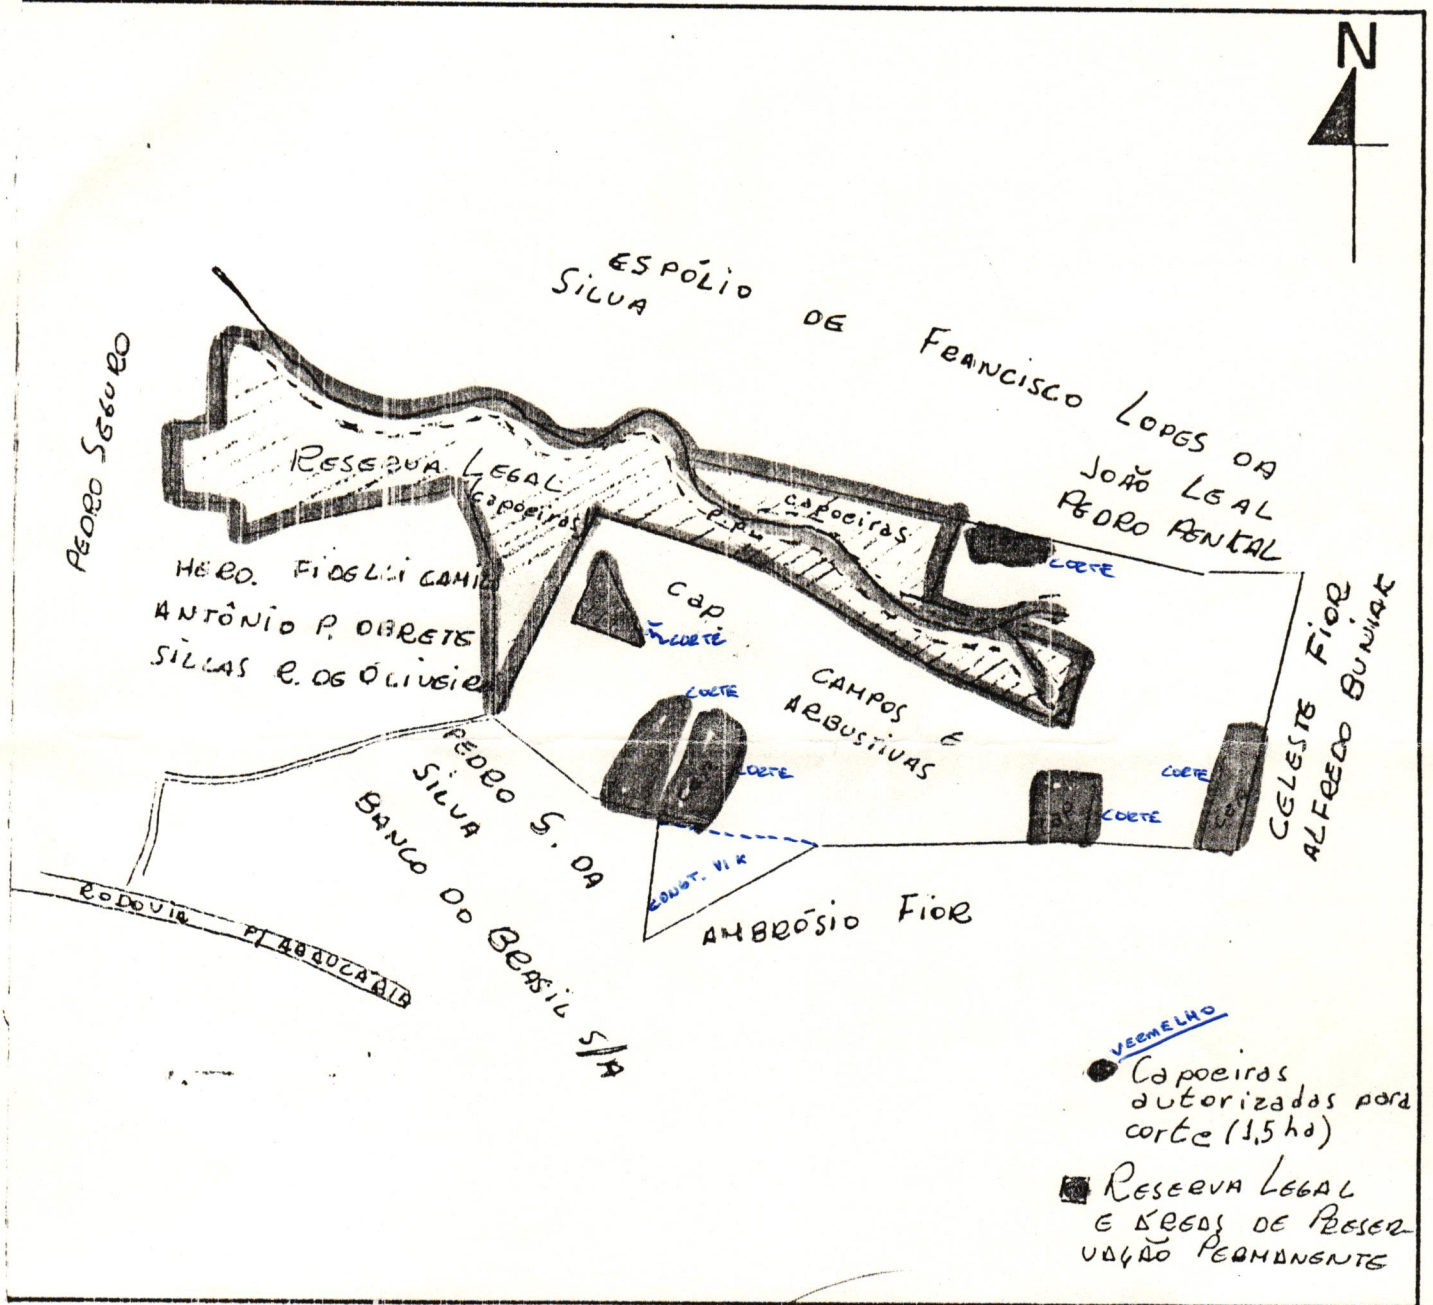 N
ESPÓLIO DE FRANCISCO LOPES DA
SILVA
JOÃO LEAL
PEDRO PENKAL
PEDRO SEGURO
RESERVA LEGAL
capoeiras
capoeiras
P.P.
CORTE
HERD. FIDELLI CAMILO
ANTÔNIO P. OBRETE
SILLAS R. DE OLIVEIRA
cap
CORTE
CAMPOS E
ARBUSTIVAS
CORTE
CORTE
CORTE
cap
CORTE
CELESTE FIOR
ALFREDO BUNIAK
PEDRO S. DA
SILVA
BANCO DO BRASIL S/A
CONST. VIK
AMBRÓSIO FIOR
RODOVIA P/ ARAUCÁRIA
VERMELHO
Capoeiras
autorizadas para
corte (1,5 ha)
RESERVA LEGAL
E ÁREAS DE PRESER-
VAÇÃO PERMANENTE